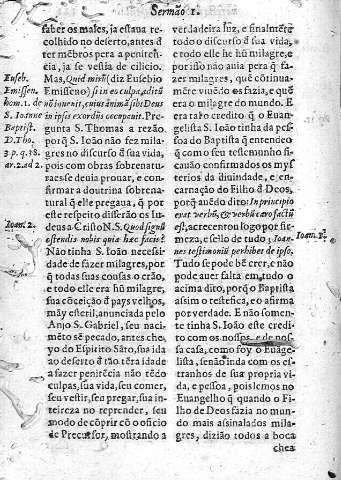 Sermão 1.
saber os males, ja estaua re-
colhido no deserto, antes d
ter mẽbros pera a penitẽ-
cia, ja se vestia de cilicio.
Mas, Quid mirũ (diz Eusebio
Emisseno) si in es culpa, aditũ
nõ inuenit, cuius animã sibi Deus
in ipsis exordiis occupauit. Pre-
gunta S. Thomas a rezão,
porq̃ S. Ioão não fez mila-
gres no discurso d̃ sua vida,
pois com obras sobrenatu-
raes se deuia prouar, e con-
firmar a doutrina sobrena-
tural q̃ elle pregaua, q̃ por
este respeito disserão os Iu-
deus a Cristo N. S. Quod signũ
ostendis nobis quia hæc facis?
Não tinha S. Ioão necessi-
dade de fazer milagres, por-
q̃ todas suas cousas o erão,
e todo elle era hũ milagre,
sua cõceição d̃ pays velhos,
mãy esteril, anunciada pelo
Anjo S. Gabriel, seu naci-
mẽto sẽ pecado, antes cheo
do Espirito Sãto, sua ida
ao deserto d̃ tão tẽra idade
a fazer penitẽcia não tẽdo
culpas, sua vida, seu comer,
seu vestir, seu pregar, sua in-
teireza no reprender, seu
modo de cõprir cõ o oficio
de Precursor, mostrando a
Euseb.
Emissen.
hom. 1. de
S. Ioanne
Baptist.
D. Tho.
3. p. q. 38.
ar. 2. ad 2.
Ioan. 2.
verdadeira luz, e finalmẽte
todo o discurso d̃ sua vida,
e todo elle he hũ milagre, e
não auia mister pera q̃ fa-
zer milagres, quẽ cõtinua-
mẽte viuẽdo os fazia, e quẽ
era o milagre do mundo. E
era tato o credito, q̃ o Euan-
gelista S. Ioão tinha da pes-
soa do Baptista q̃ entendeo
q̃ como o seu testemunho fi-
cauão confirmados os mys-
terios da diuindade, e en-
carnação do Filho d̃ Deos,
porq̃ auẽdo dito: In principio
erat verbũ, & verbũ caro factũ
est, acrecentou logo por fir-
meza, e sello de tudo; Ioan-
nes testimoniũ perhibet de ipso.
Tudo se pode bẽ crer, e não
pode auer falta em tudo o
acima dito, porq̃ o Baptista
assim o testefica, e o afirma
por verdade. E não somen-
te tinha S. Ioão este credi-
to com os nossos, e de nos-
sa casa, como foy o Euãge-
lista, senão inda com os es-
tranhos de sua propria vi-
da, e pessoa, pois lemos no
Euangelho q̃ quando o Fi-
lho de Deos fazia no mun-
do mais assinalados mila-
gres, dizião todos a boca
chea